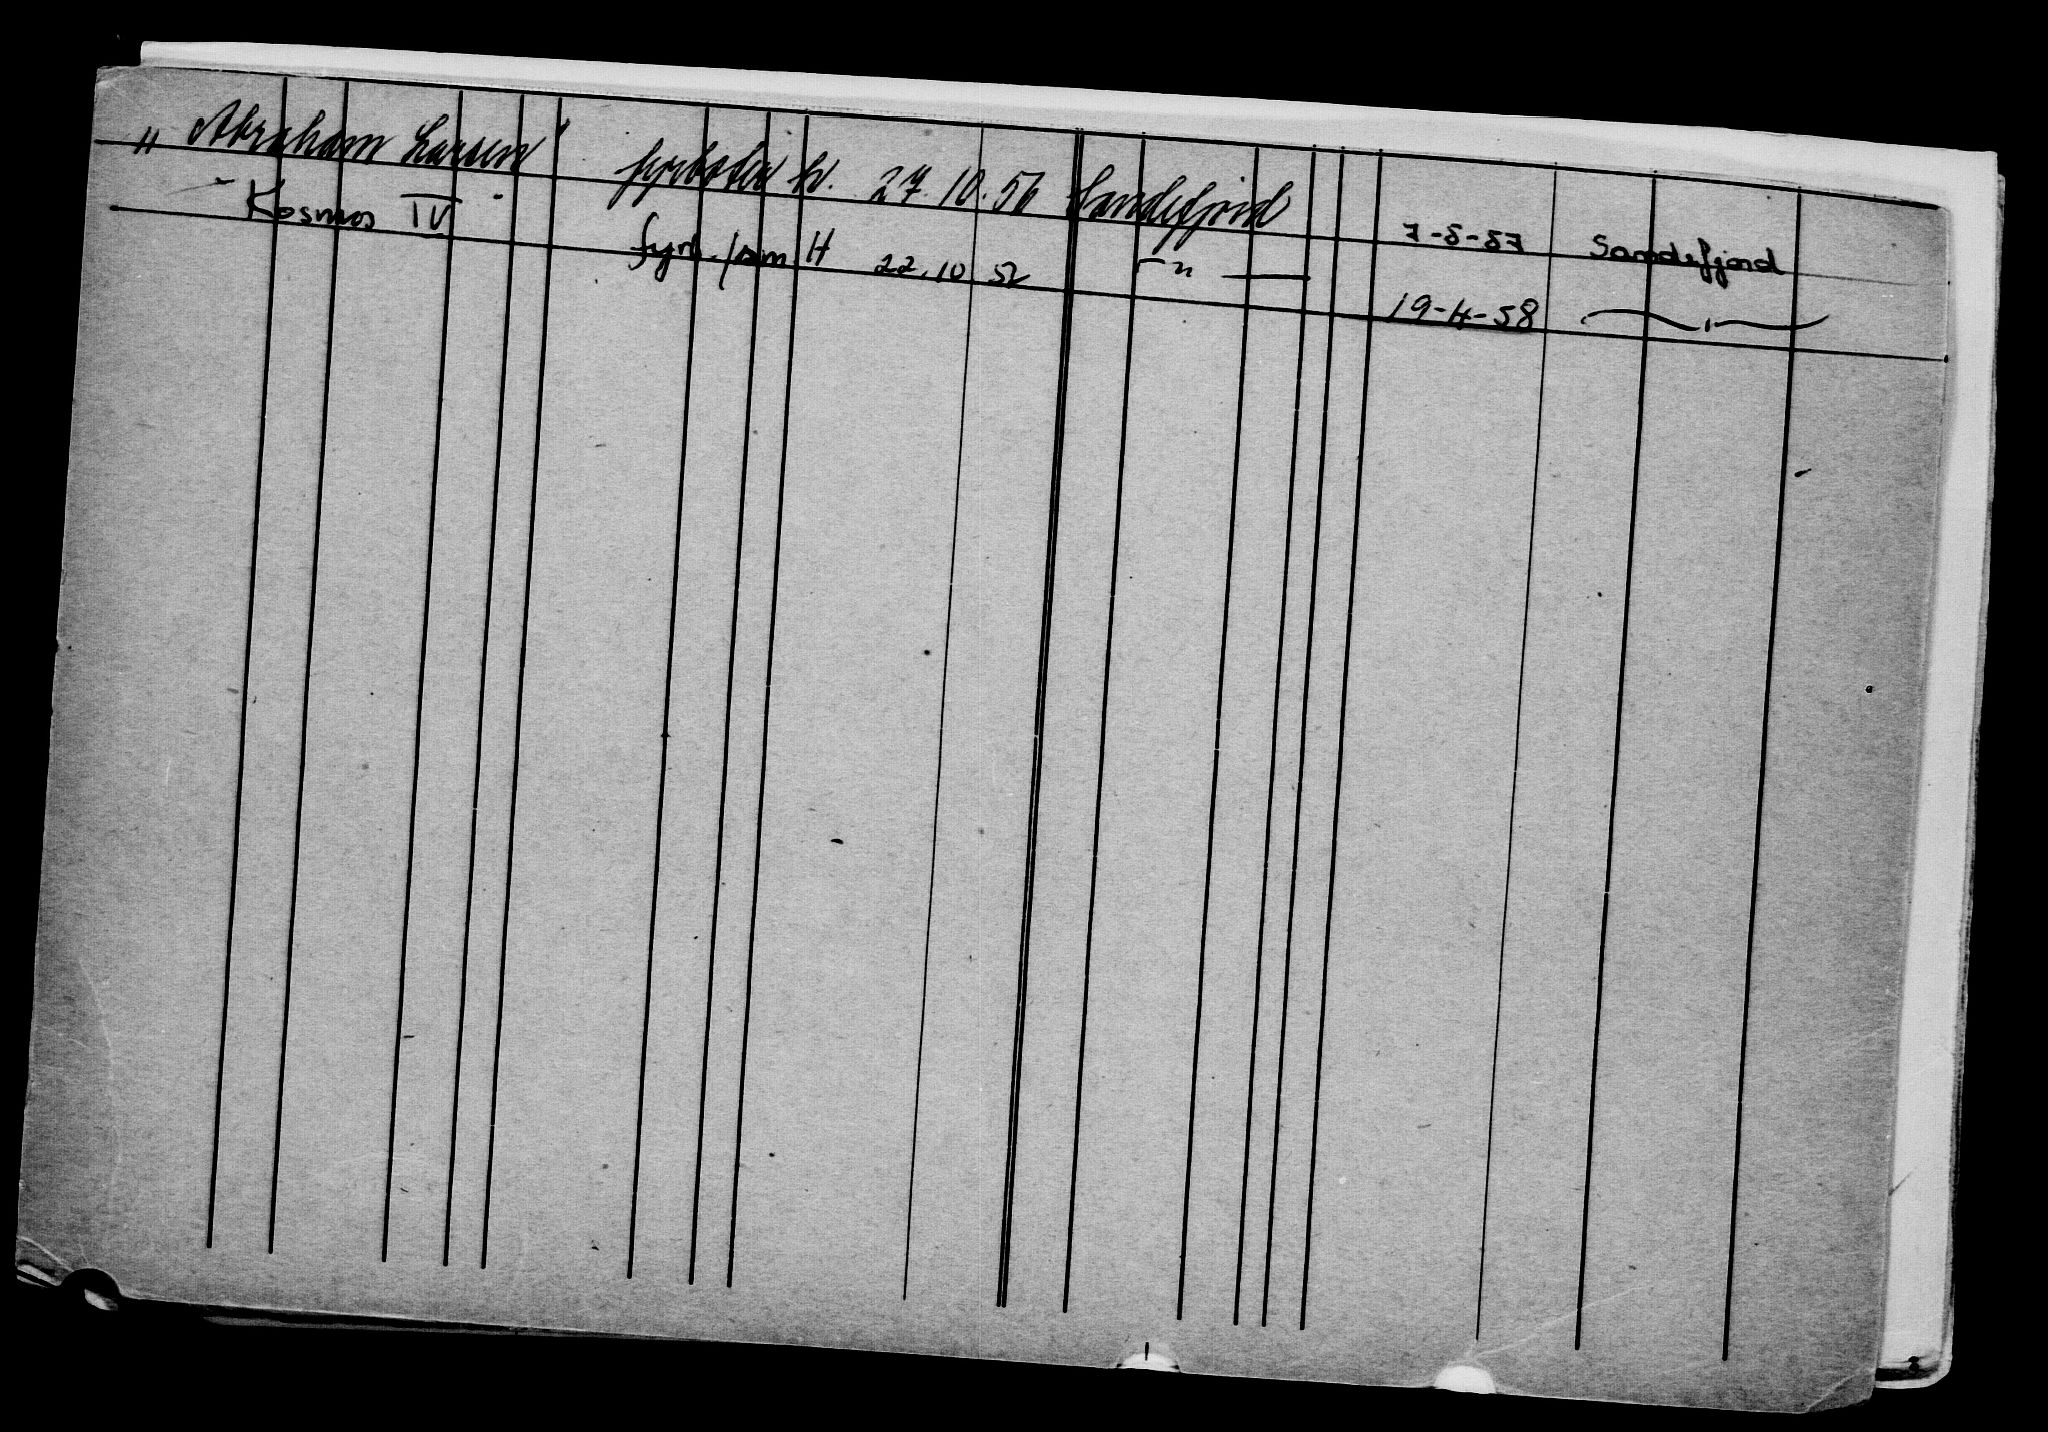 " Abraham Larsen fyrbøter h. 27.10.56 Sandefjord 7-5-57 Sandefjord
Kosmos IV fyrb. H 22.10 52 — " — 19-4-58 — " —